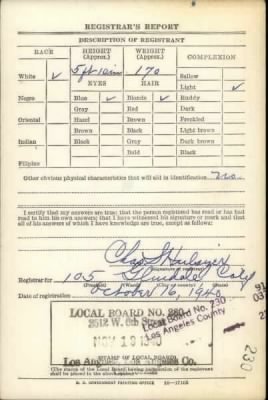 REGISTRAR'S REPORT
DESCRIPTION OF REGISTRANT
RACE HEIGHT (Approx.) WEIGHT (Approx.) COMPLEXION
White ✓ 5 ft 10 in 170 Sallow
EYES HAIR Light ✓
Negro Blue ✓ Blonde ✓ Ruddy
Gray Red Dark
Oriental Hazel Brown Freckled
Brown Black Light brown
Indian Black Gray Dark brown
Bald Black
Filipino
Other obvious physical characteristics that will aid in identification No.
I certify that my answers are true; that the person registered has read or has had read to him his own answers; that I have witnessed his signature or mark and that all of his answers of which I have knowledge are true, except as follows:
Chas
Registrar for 105 Glendale Calif
(Precinct) (Ward) (City or county) (State)
Date of registration October 16, 1940
LOCAL BOARD NO. 230
2512 W. 6th Street
NOV 19 1940
Local Board No. 230
Los Angeles County
Los Angeles, Los Angeles Co.
STAMP OF LOCAL BOARD
(The stamp of the Local Board having jurisdiction of the registrant shall be placed in the above space.)
U. S. GOVERNMENT PRINTING OFFICE 16—17105
230